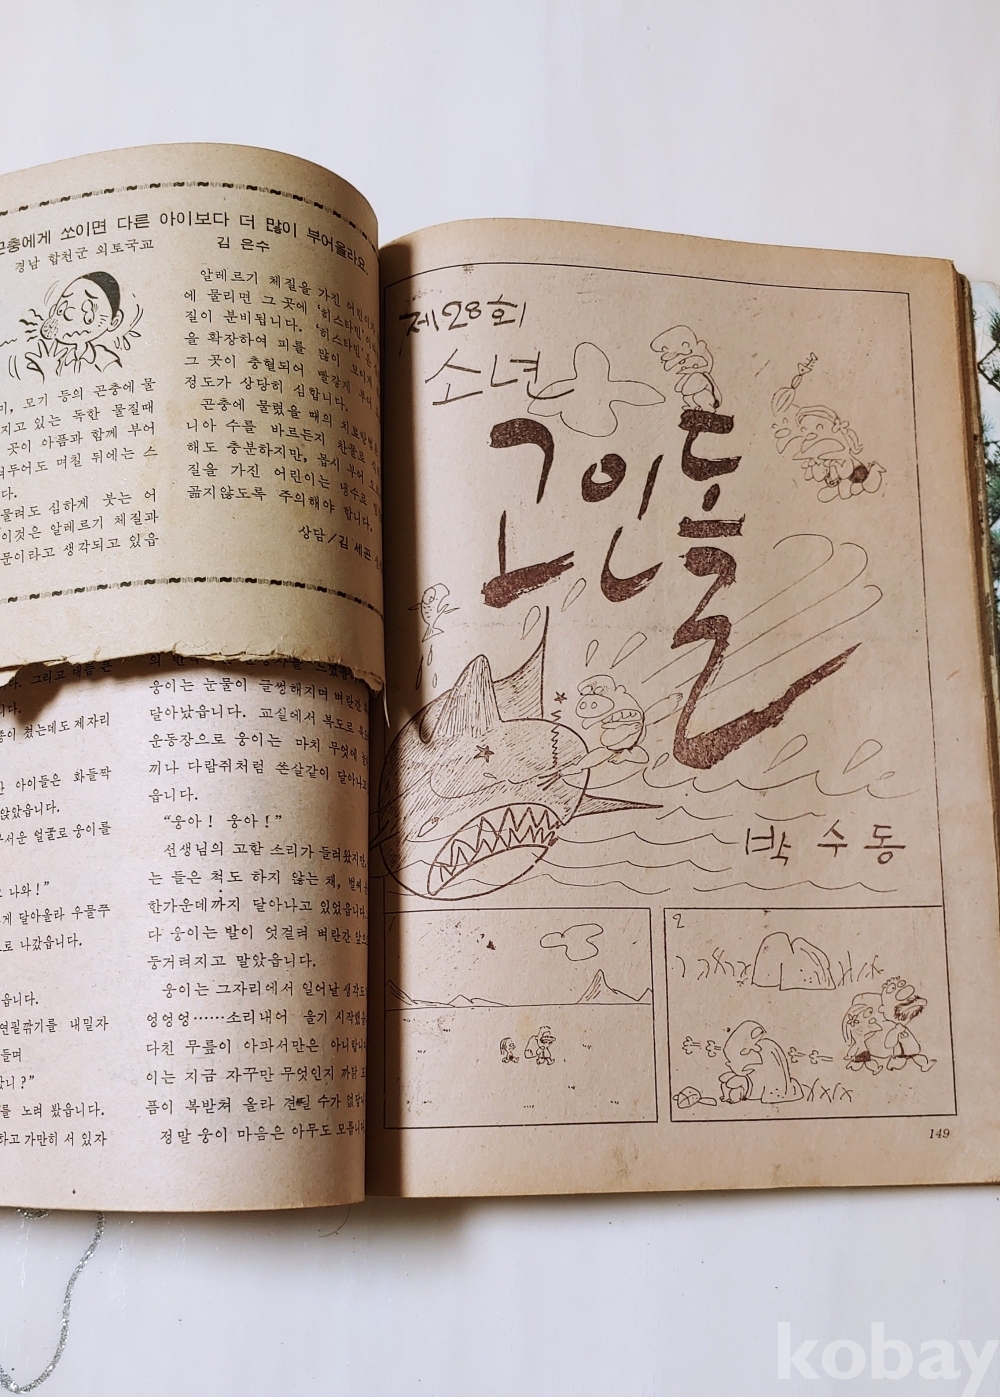 곤충에게 쏘이면 다른 아이보다 더 많이 부어올라요.
경남 합천군 외토국교 김 은수
미, 모기 등의 곤충에 물
지고 있는 독한 물질때
곳이 아픔과 함께 부어
며칠 뒤에는 스
다.
물려도 심하게 붓는 어
이것은 알레르기 체질과
문이라고 생각되고 있읍
알레르기 체질을 가진
에 물리면 그 곳에 '히스타민'
질이 분비됩니다. '히스타민'
을 확장하여 피를 많이 모이게
그 곳이 충혈되어 빨갛게 부어
정도가 상당히 심합니다.
곤충에 물렸을 때의
니아 수를 바르든지 찬물로
해도 충분하지만, 몹시 부어
질을 가진 어린이는 냉수로
곪지않도록 주의해야 합니다.
상담/김 세곤
그리고
니다.
종이 쳤는데도 제자리
아이들은 화들짝
앉았읍니다.
무서운 얼굴로 웅이를
나와!”
게 달아올라 우물쭈
로 나갔읍니다.
읍니다.
연필깎기를 내밀자
들며
니?”
를 노려 봤읍니다.
하고 가만히 서 있자
웅이는 눈물이 글썽해지며 벼란간
달아났읍니다. 교실에서 복도로
운동장으로 웅이는 마치 무엇에
끼나 다람쥐처럼 쏜살같이 달아나고
읍니다.
“웅아! 웅아!”
선생님의 고함 소리가 들려왔지만,
는 들은 척도 하지 않는 채, 벌써
한가운데까지 달아나고 있었읍니다.
다 웅이는 발이 엇걸려 벼란간
둥거려지고 말았읍니다.
웅이는 그자리에서 일어날 생각도
엉엉엉……소리내어 울기 시작했읍
다친 무릎이 아파서만은 아니랍니다
이는 지금 자꾸만 무엇인지 까닭
픔이 복받쳐 올라 견딜 수가 없답니
정말 웅이 마음은 아무도 모릅니다
제28회
소년
고인돌
박수동
1
2
149
kobay